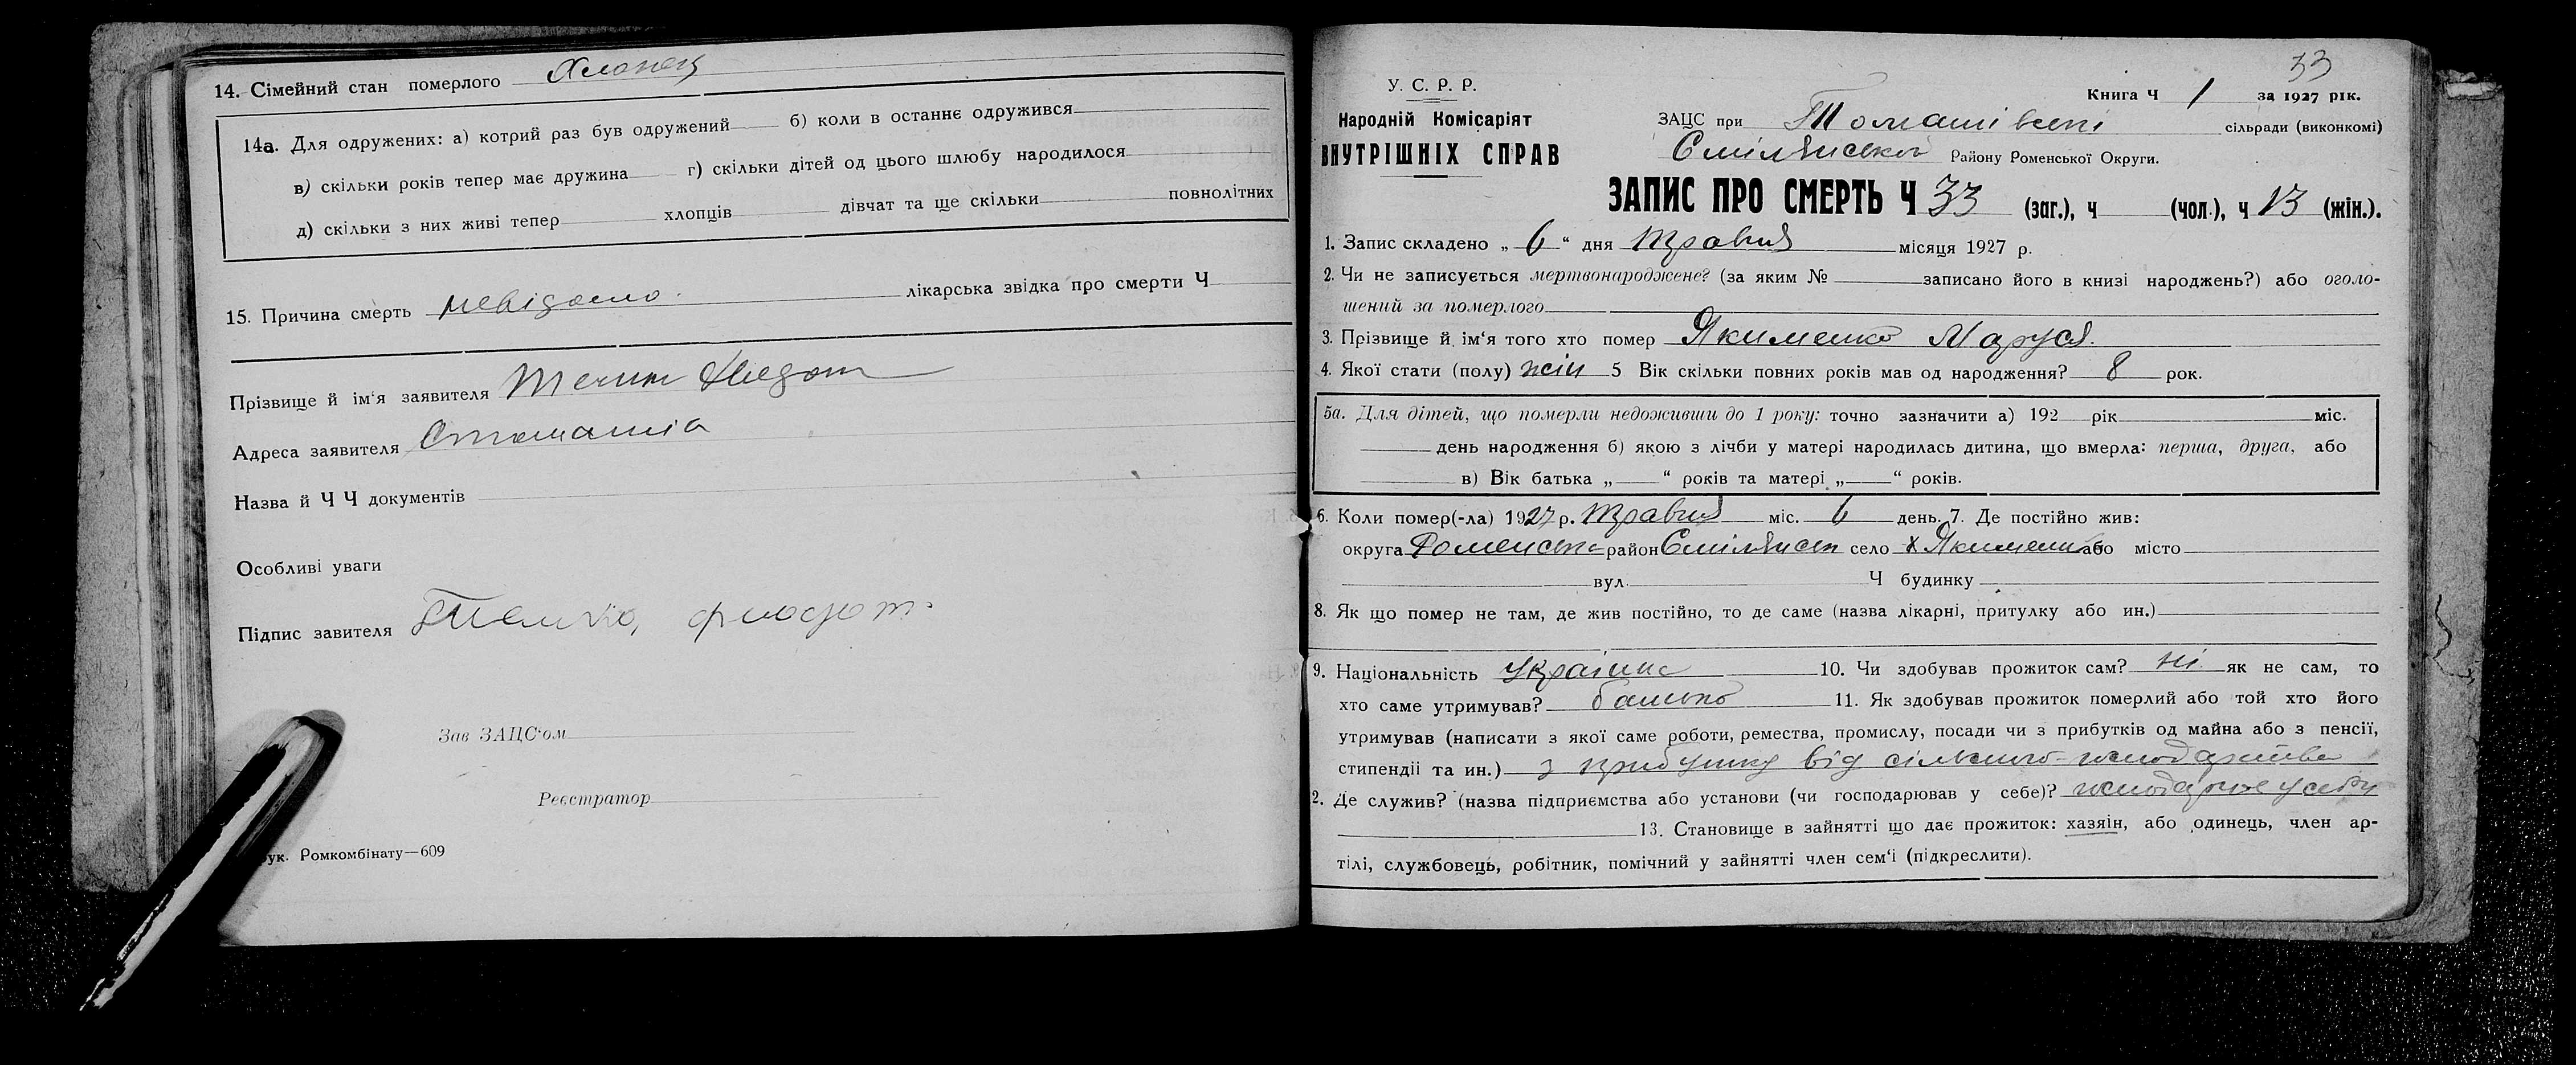 14. Сімейний стан померлого Хлопець
14а. Для одружених: а) котрий раз був одружений б) коли в останнє одружився
в) скільки років тепер має дружина г) скільки дітей од цього шлюбу народилося
д) скільки з них живі тепер хлопців дівчат та ще скільки повнолітних
15. Причина смерть невідомо. лікарська звідка про смерти Ч
Прізвище й ім‘я заявителя
Адреса заявителя
Назва й Ч Ч документів
Особливі уваги
Підпис завителя
Зав ЗАЦС‘ом
Реєстратор
ук. Ромкомбінату—609
33
У. С. Р. Р.
Книга Ч 1 за 1927 рік.
Народній Комісаріят
ЗАЦС при Томашівські сільради (виконкомі)
ВНУТРІШНІХ СПРАВ
Смілянської Району Роменської Округи.
ЗАПИС ПРО СМЕРТЬ Ч 33 (заг.), ч (чол.), ч 13 (жін.).
1. Запис складено „ 6 “ дня травня місяця 1927 р.
2. Чи не записується мертвонароджене? (за яким № записано його в книзі народжень?) або оголо-
шений за померлого
3. Прізвище й ім‘я того хто помер Якименко Маруся.
4. Якої стати (полу) жін 5 Вік скільки повних років мав од народження? 8 рок.
5а. Для дітей, що померли недоживши до 1 року: точно зазначити а) 192 рік міс.
день народження б) якою з лічби у матері народилась дитина, що вмерла: перша, друга, або
в) Вік батька „ “ років та матері „ “ років.
6. Коли помер(-ла) 1927 р. травня міс. 6 день. 7. Де постійно жив:
округа Роменська район Смілянськ село х Якименків або місто
вул. Ч будинку
8. Як що помер не там, де жив постійно, то де саме (назва лікарні, притулку або ин.)
9. Національність Україна 10. Чи здобував прожиток сам? ні як не сам, то
хто саме утримував? батько 11. Як здобував прожиток померлий або той хто його
утримував (написати з якої саме роботи, ремества, промислу, посади чи з прибутків од майна або з пенсії,
стипендії та ин.) з прибутку від сільського господарства
2. Де служив? (назва підприємства або установи (чи господарював у себе)? господарює у себе
13. Становище в зайнятті що дає прожиток: хазяін, або одинець, член ар-
тілі, службовець, робітник, помічний у зайнятті член сем‘і (підкреслити).